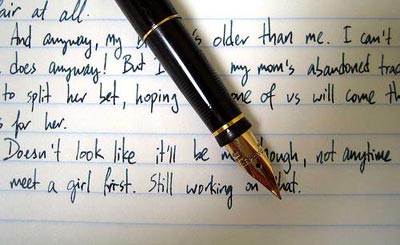 air at all.
And anyway, my is older than me. I can't
does anyway! But I my mom's abandoned trac
to split her bet, hoping one of us will come th
s for her.
Doesn't look like it'll be me though, not anytime
meet a girl first. Still working on that.